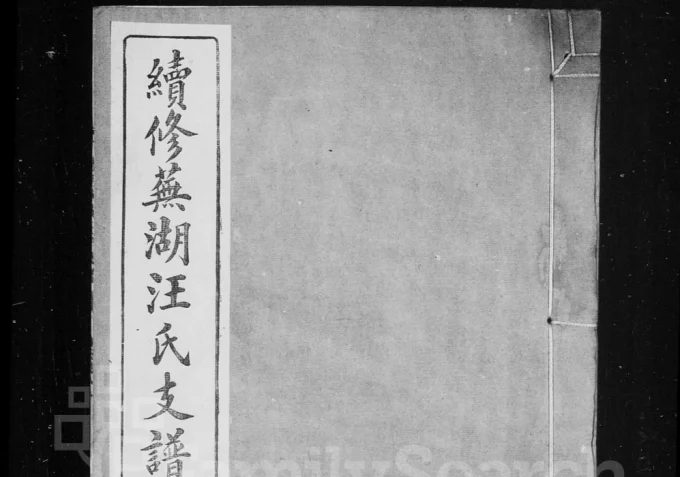 續修蕪湖汪氏支譜
FamilySearch